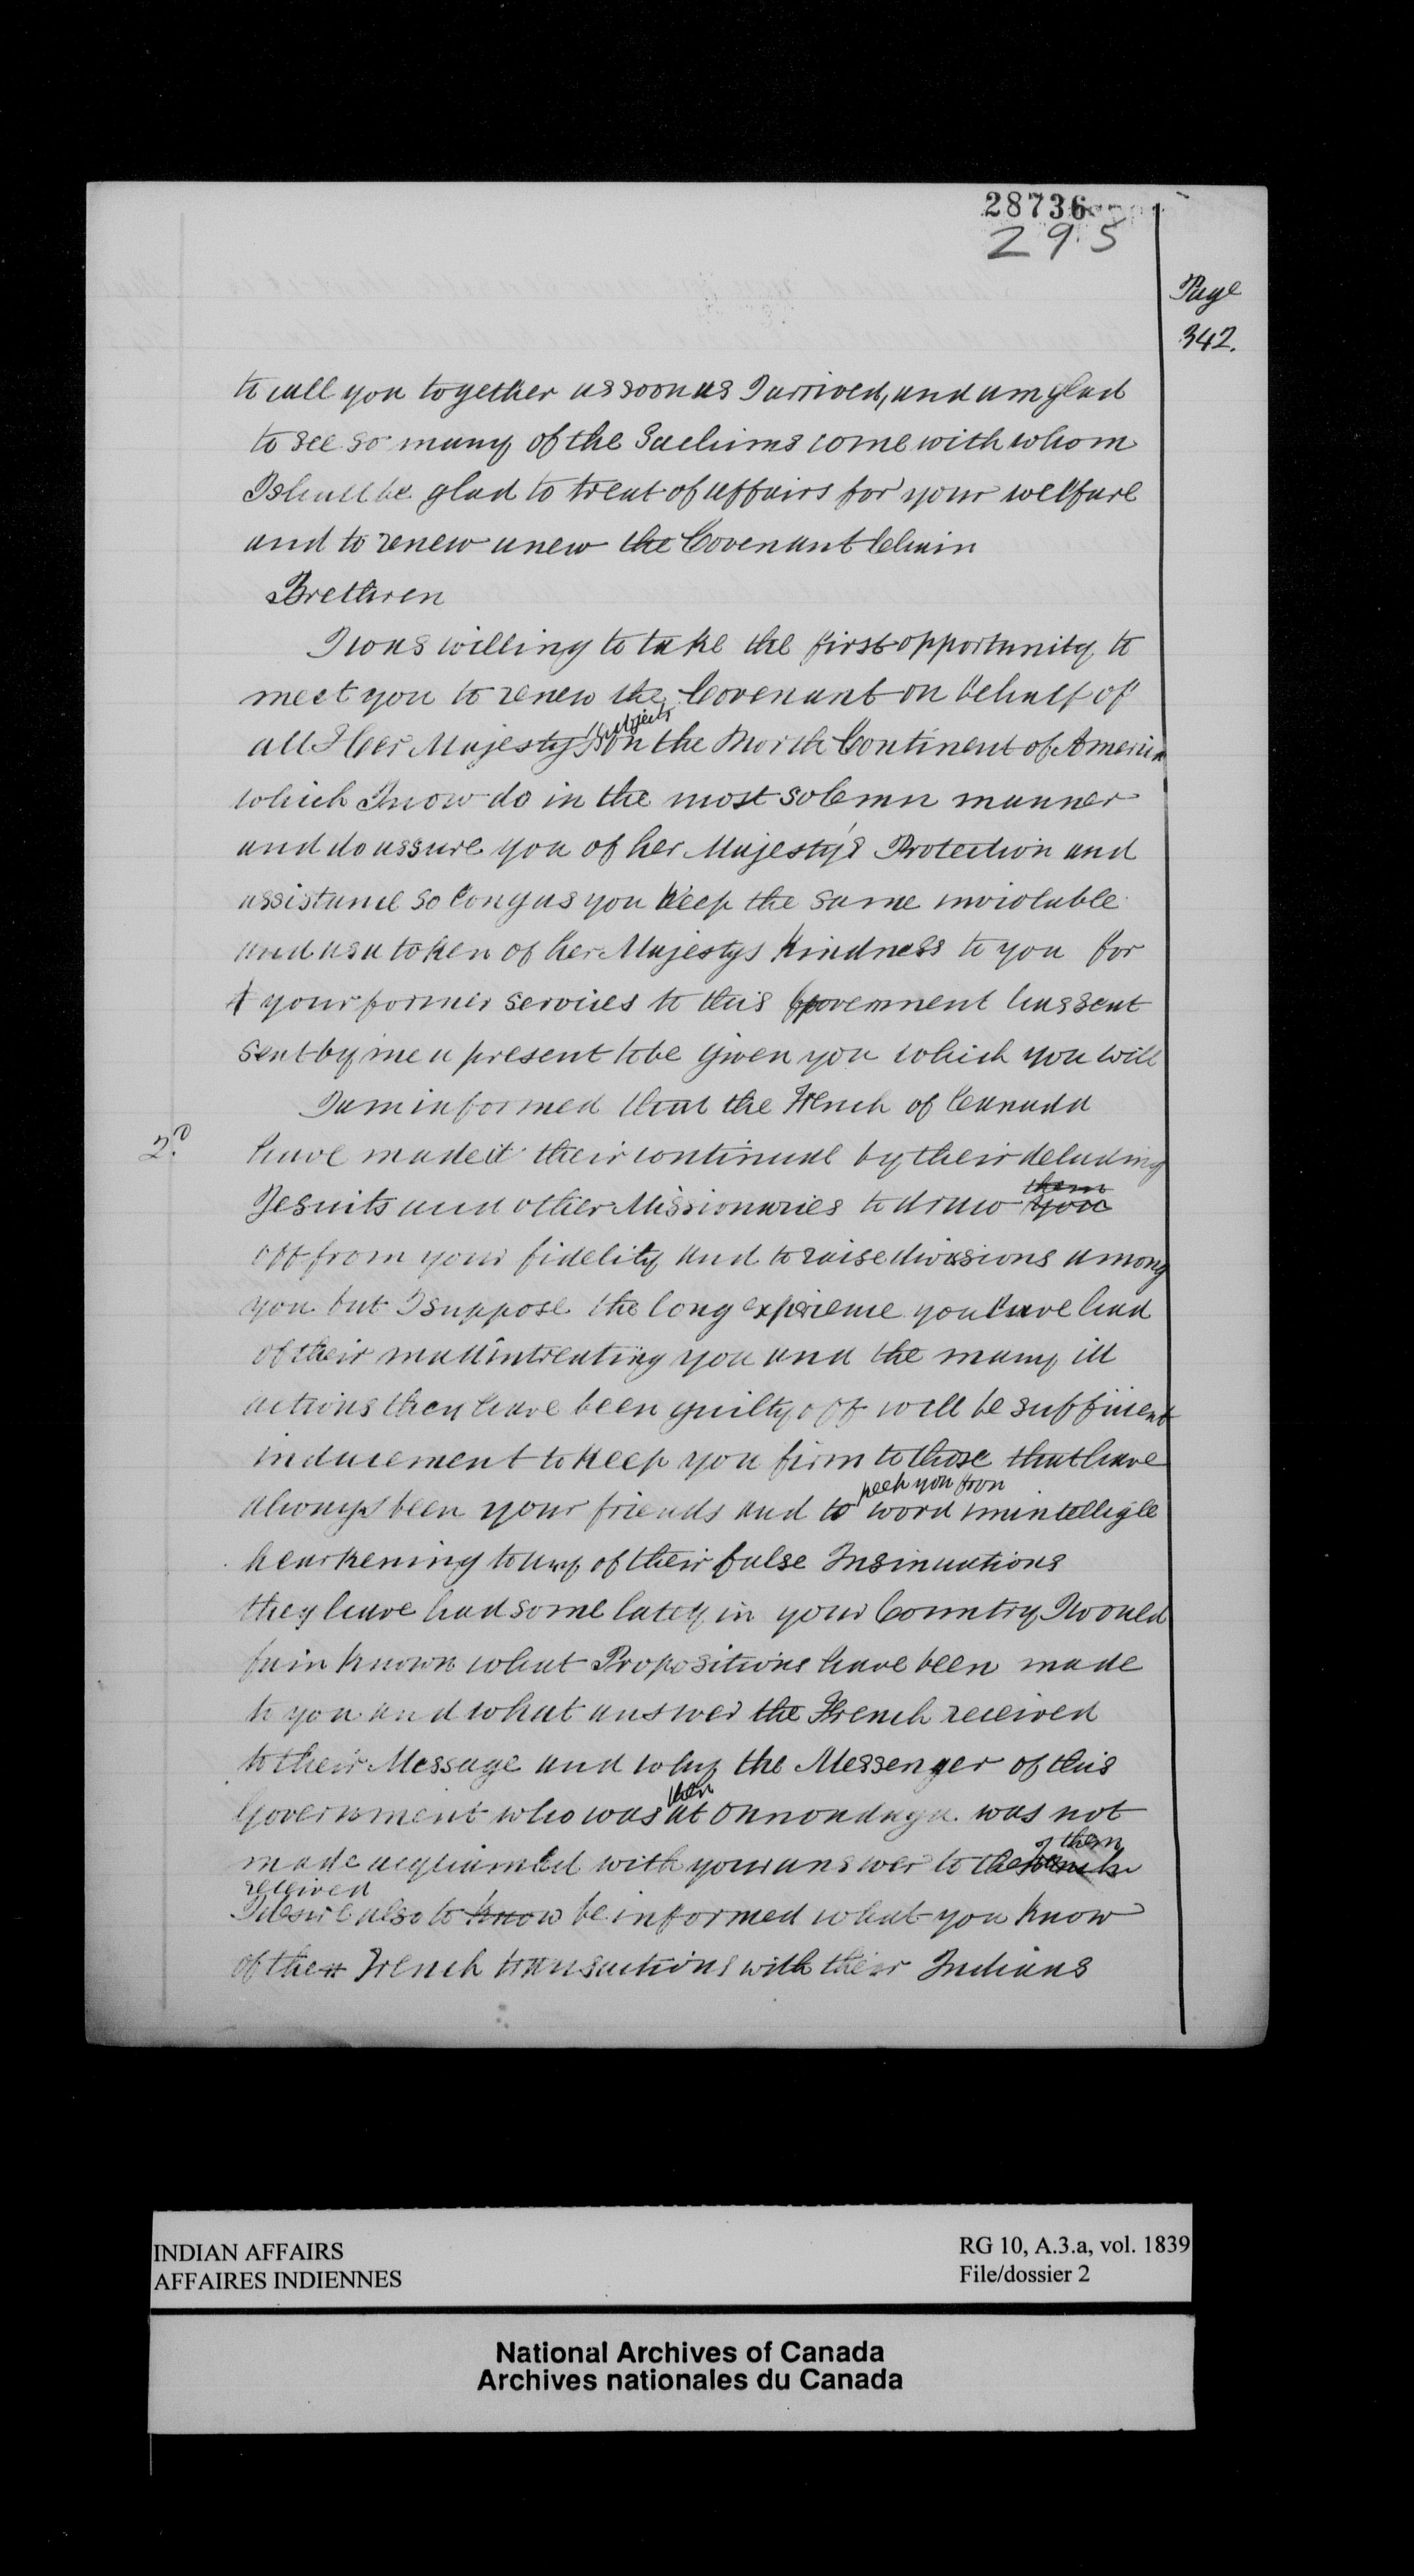 28736
295
Page
342.
to call you together as soon as I arrived, and am glad
to see so many of the Sachims come with whom
I shall be glad to treat of affairs for your welfare
and to renew anew the Covenant Chain
Brethren
I was willing to take the first opportunity to
meet you to renew the Covenant on behalf of
subjects
all Her Majestys on the North Continent of America
which I now do in the most solemn manner
and do assure you of her Majesty's Protection and
assistance so long as you keep the same inviolable
and as a token of her Majestys kindness to you for
your former services to this Government has sent
sent by me a present to be given you which you will
I am informed that the French of Canada
2d
have made it their continual by their deluding
them
Jesuits and other Missionaries to draw you
off from your fidelity and to raise divisions among
you but I suppose the long experience you have had
of their mallintreating you and the many ill
actions they have been guilty off will be suffiient
inducement to keep you firm to those that have
keep you from
always been your friends and to word unintelligle
hearkening to any of their false Insinuations
they have had some lately in your Country I would
fain known what Propositions have been made
to you and what answer the French received
to their Message and why the Messenger of this
then
Government who was at Onnondaga was not
of them
made acquainted with your answer to the French
received
I desire also to know be informed what you know
of the French transactions with their Indians
INDIAN AFFAIRS
AFFAIRES INDIENNES
RG 10, A.3.a, vol. 1839
File/dossier 2
National Archives of Canada
Archives nationales du Canada